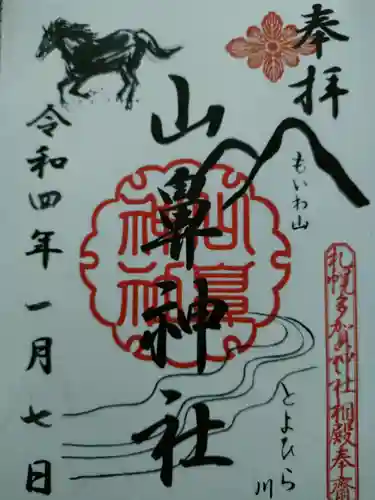 奉拝
札幌多賀神社相殿奉齋
もいわ山
山鼻神社
山鼻
神社
とよひら
川
令和四年一月七日